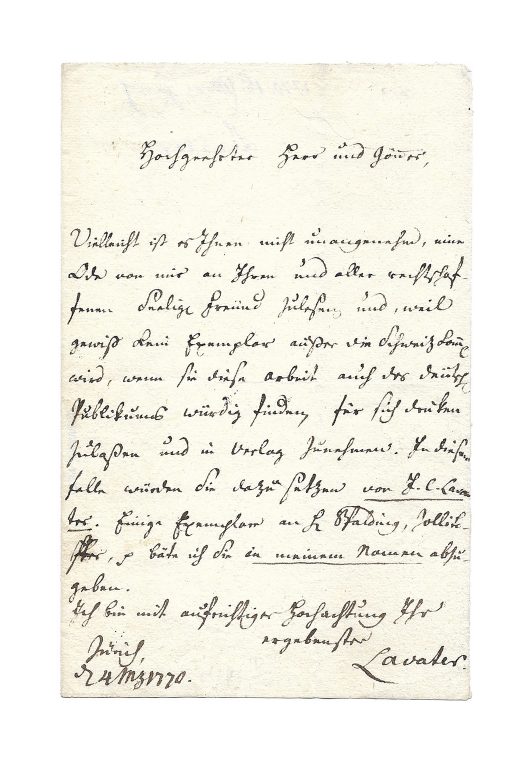 Hochgeehrter Herr und Gönner,
Vielleicht ist es Ihnen nicht unangenehm, eine
Ode von mir an Ihren und aller rechtschaf-
fenen Seelig Freünd zulesen und, weil
gewiß kein Exemplar außer die Schweitz
wird, wenn sie diese arbeit auch des deütsch
Publikums würdig finden, für sich druken
zulaßen und in Verlag zunehmen. In diesem
falle würden Sie dazu setzen von J. C. Lava-
ter. Einige Exemplare an H Spalding, Zolliko-
fer, p bäte ich Sie in meinem Nomen abzu-
geben.
Ich bin mit aufrichtiger Hochachtung Ihr
ergebenster
Zürich, Lavater.
d 4 Mz 1770.